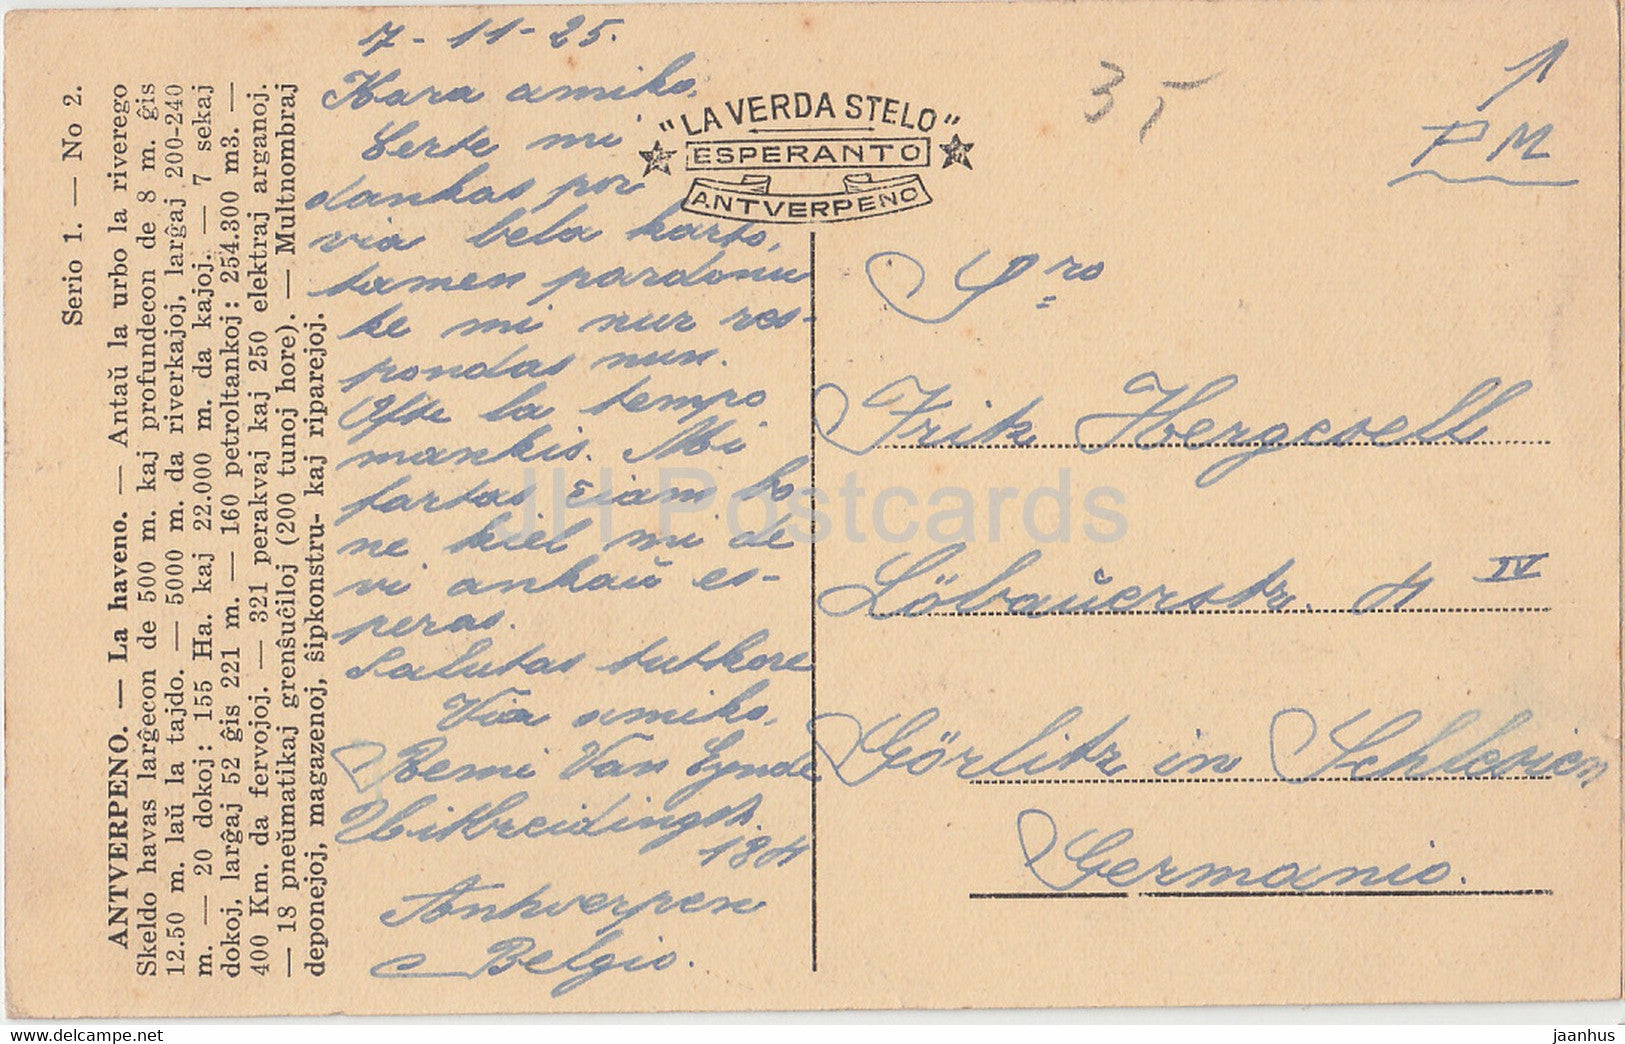 Serio 1. — No 2.
ANTVERPENO. — La haveno. — Antaŭ la urbo la riverego
Skeldo havas larĝecon de 500 m. kaj profundecon de 8 m. ĝis
12.50 m. laŭ la tajdo. — 5000 m. da riverkajoj, larĝaj 200-240
m. — 20 dokoj: 155 Ha. kaj 22.000 m. da kajoj. — 7 sekaj
dokoj, larĝaj 52 ĝis 221 m. — 160 petroltankoj: 254.300 m3. —
400 Km. da fervojoj. — 321 perakvaj kaj 250 elektraj arganoj.
— 18 pneŭmatikaj grenŝuĉiloj (200 tunoj hore). — Multnombraj
deponejoj, magazenoj, ŝipkonstru- kaj riparejoj.
7-11-25.
Kara amiko,
Certe mi
dankas por
via bela karto,
tamen pardonu
ke mi nur res-
pondas nun.
Ofte la tempo
mankis. Mi
fartas ĉiam bo
ne kiel mi de
vi ankaŭ es-
peras.
Salutas tutkore
Via amiko,
Remi Van Eynde
184
Antwerpen
Belgio.
"LA VERDA STELO"
ESPERANTO
ANTVERPENO
35
1
PM
Sro
Frik Hergesell
Löbauerstr. 4 IV
Görlitz in Schlesien
Germanio.
JH Postcards
www.delcampe.net
jaanhus